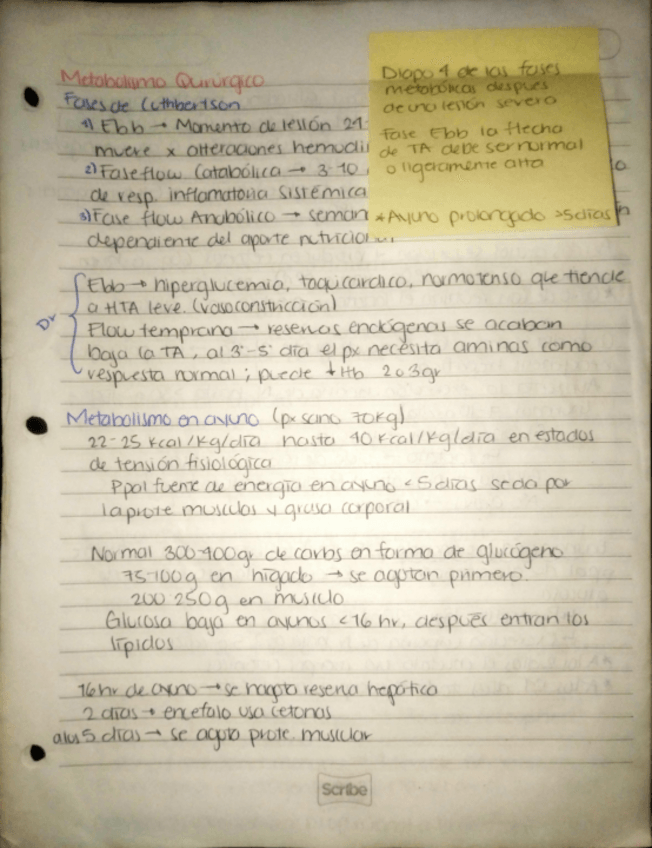 Metabolismo Quirúrgico
Fases de Cuthbertson
1) Ebb → Momento de lesión 24
muere x alteraciones hemodi
2) Fase flow Catabólica → 3-10
de resp. inflamatoria sistémica
3) Fase flow Anabólico → seman
dependiente del aporte nutricional.
Diapo 4 de las fases
metabólicas después
de una lesión severa
Fase Ebb la flecha
de TA debe ser normal
o ligeramente alta
*Ayuno prolongado >5días
Dr
Ebb → hiperglucemia, taquicardico, normotenso que tiende
a HTA leve. (vasoconstricción)
Flow temprana → reservas endógenas se acaban
baja la TA, al 3°-5° día el px necesita aminas como
respuesta normal; puede ↓Hb 2 o 3gr
Metabolismo en ayuno (px sano 70kg)
22-25 Kcal/Kg/día hasta 40 Kcal/Kg/día en estados
de tensión fisiológica
Ppal fuente de energía en ayuno <5 días se da por
la prote musculos y grasa corporal
Normal 300-400gr de carbs en forma de glucógeno
75-100g en hígado → se agotan primero.
200-250g en musculo
Glucosa baja en ayunos <16 hr, después entran los
lípidos
16hr de ayuno → se hagota reserva hepática
2 días → encefalo usa cetonas
a los 5 días → se agota prote. muscular
Scribe